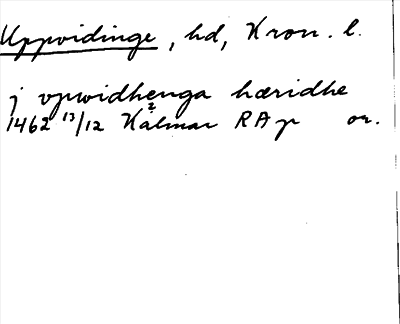 Uppvidinge, hd, Kron. l.
j vpwidhenga hæridhe
1462 13/12 Kalmar RAp or.